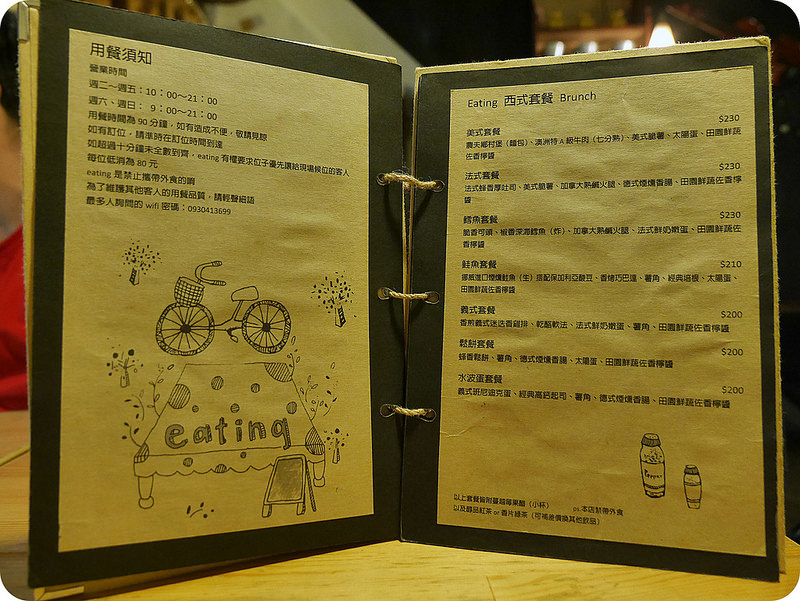 用餐須知
營業時間
週二~週五:10:00~21:00
週六、週日: 9:00~21:00
用餐時間為 90 分鐘,如有造成不便,敬請見諒
如有訂位,請準時在訂位時間到達
如超過十分鐘未全數到齊,eating 有權要求位子優先讓給現場候位的客人
每位低消為 80 元
eating 是禁止攜帶外食的唷
為了維護其他客人的用餐品質,請輕聲細語
最多人詢問的 wifi 密碼:0930413699
eating
Eating 西式套餐 Brunch
美式套餐 $230
農夫鄉村堡(麵包)、澳洲特 A 級牛肉(七分熟)、美式脆薯、太陽蛋、田園鮮蔬
佐香檸醬
法式套餐 $230
法式蜂香厚吐司、美式脆薯、加拿大熱鹹火腿、德式煙燻香腸、田園鮮蔬佐香檸
醬
鱈魚套餐 $230
脆香可頌、椒香深海鱈魚(炸)、加拿大熱鹹火腿、法式鮮奶嫩蛋、田園鮮蔬佐
香檸醬
鮭魚套餐 $210
挪威進口煙燻鮭魚(生)搭配保加利亞酸豆、香烤巧巴達、薯角、經典培根、太陽蛋、
田園鮮蔬佐香檸醬
義式套餐 $200
香煎義式迷迭香雞排、乾酪軟法、法式鮮奶嫩蛋、薯角、田園鮮蔬佐香檸醬
鬆餅套餐 $200
蜂香鬆餅、薯角、德式煙燻香腸、太陽蛋、田園鮮蔬佐香檸醬
水波蛋套餐 $200
義式班尼迪克蛋、經典高鈣起司、薯角、德式煙燻香腸、田園鮮蔬佐香檸醬
Pepper
以上套餐皆附蔓越莓果醋(小杯) ps.本店禁帶外食
以及醇品紅茶 or 香片綠茶(可補差價換其他飲品)